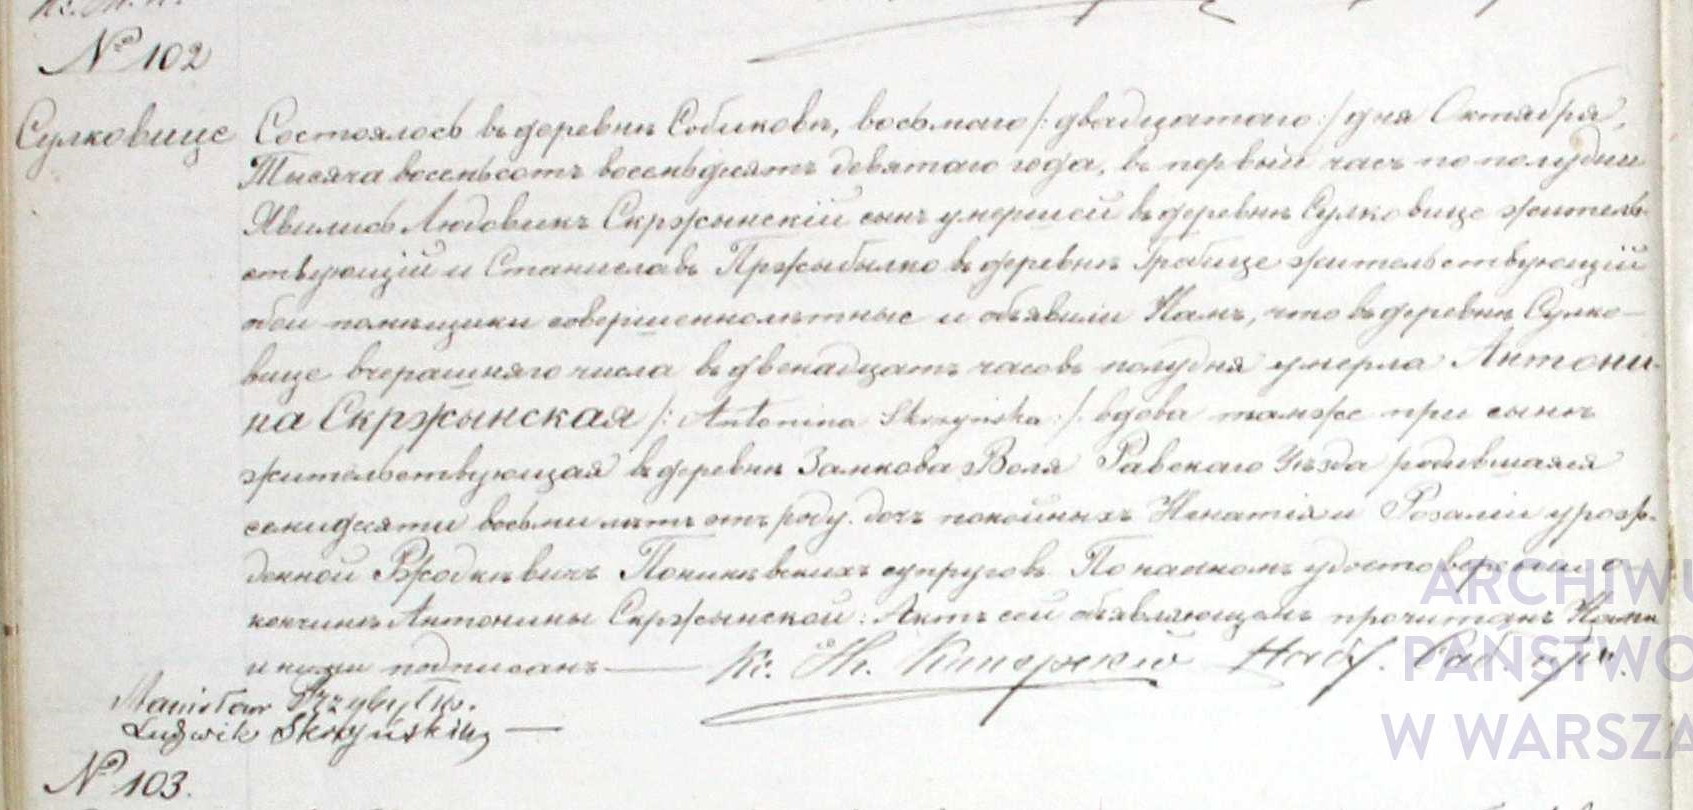 № 102
Сулковице
Состоялось въ деревнѣ Собиковѣ, восьмаго /: двадцатаго :/ дня Октября,
Тысяча восемьсотъ восемьдесятъ девятаго года, въ первый часъ по полудни
Явились Людовикъ Скржынскій сынъ умершей въ деревнѣ Сулковице житель-
ствующій и Станиславъ Пржыбылко въ деревнѣ Гробице жительствующій
обои помѣщики совершеннолѣтные и объявили Намъ, что въ деревнѣ Сулко-
вице вчерашняго числа въ двенадцать часовъ полудня умерла Антони-
на Скржынская /: Antonina Skrzynska :/ вдова тамже при сынѣ
жительствующая въ деревнѣ Замкова Воля Равскаго Уѣзда родившаяся
семидесяти восьми лѣтъ отъ роду. дочь покойныхъ Игнатія и Розаліи урож-
денной Ржодкѣвичъ Поникѣвскихъ супруговъ. По наичномъ удостовереніи о
кончинѣ Антонины Скржынской: Актъ сей объявляющемъ прочитанъ Нами
и ними подписанъ
Stanisław Przybyłko.
Ludwik Skrzyński
№ 103.
ARCHIWU
PAŃSTWO
W WARSZA